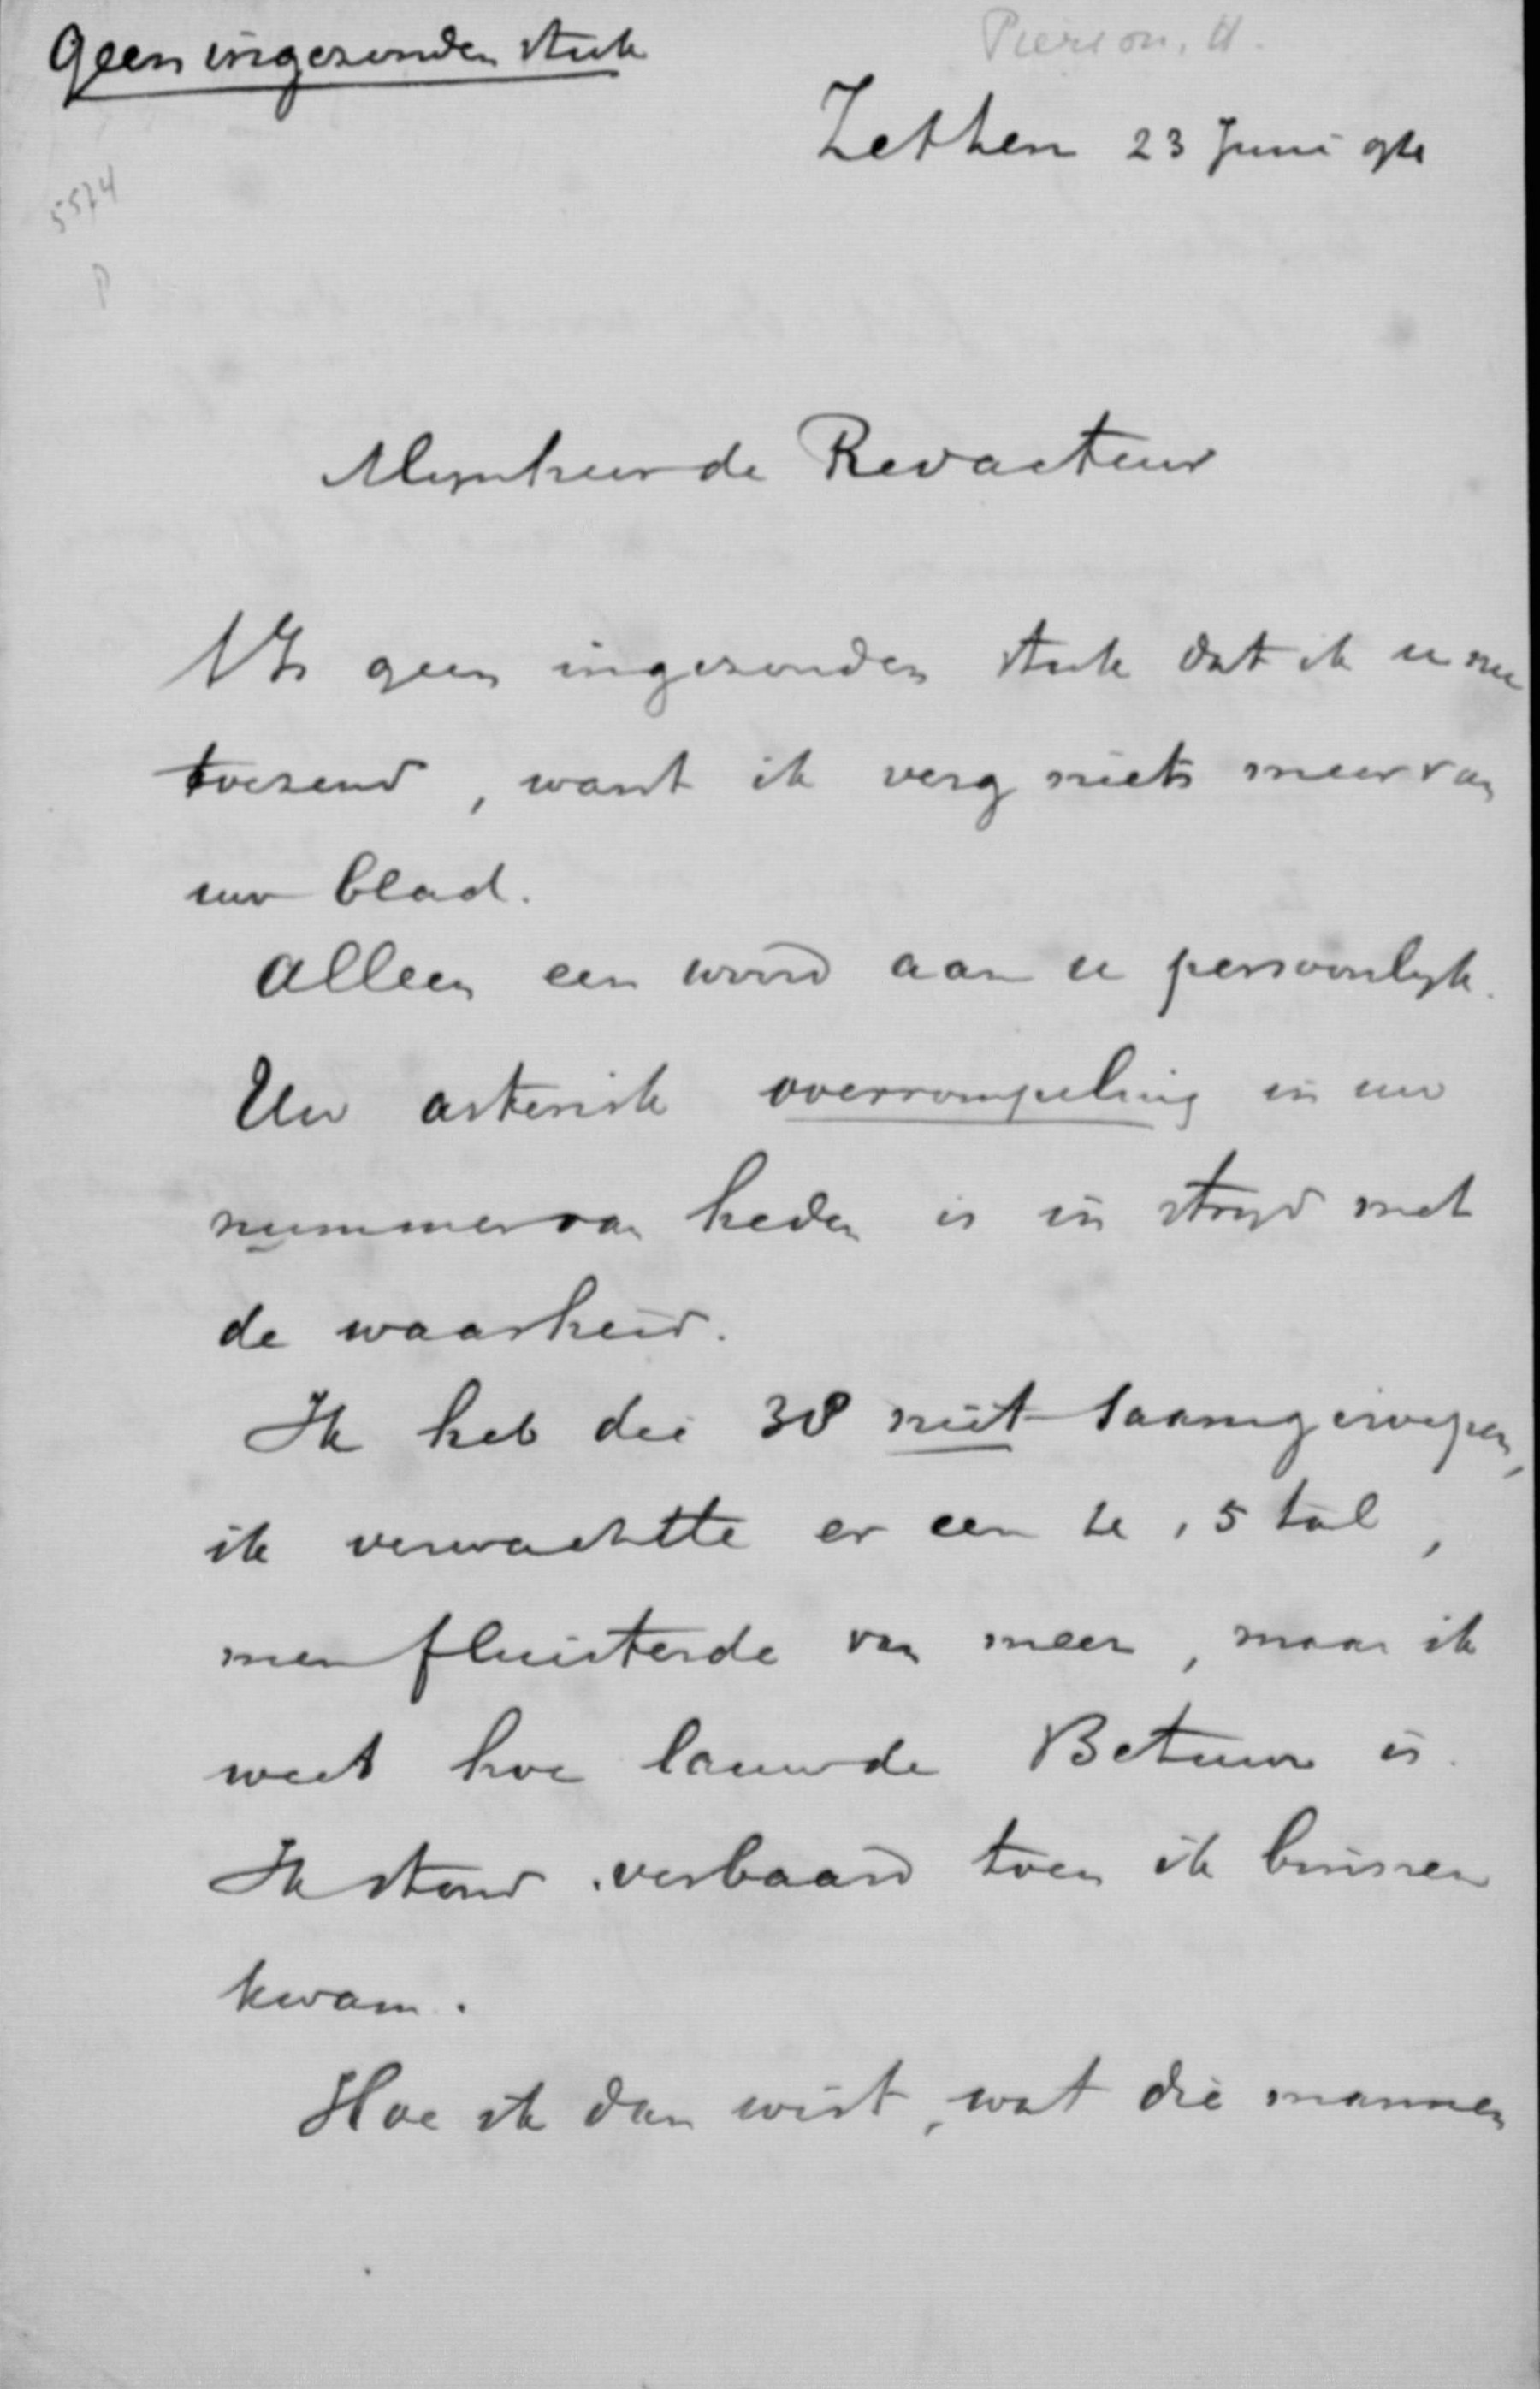 Geen ingezonden stuk
Pierson, H.
Zetten 23 Juni 94
5574
P
Mijnheer de Redacteur
't Is geen ingezonden stuk dat ik u nu
toezend, want ik verg niets meer van
uw blad.
Alleen een woord aan u persoonlijk.
Uw asterisk overrompeling in uw
nummer van heden is in strijd met
de waarheid.
Ik heb die 38 niet saamgeroepen,
ik verwachtte er een 15 tal,
men fluisterde van meer, maar ik
weet hoe lauw de Betuwe is.
Ik stond verbaasd toen ik binnen
kwam.
Hoe ik dan wist, wat die mannen